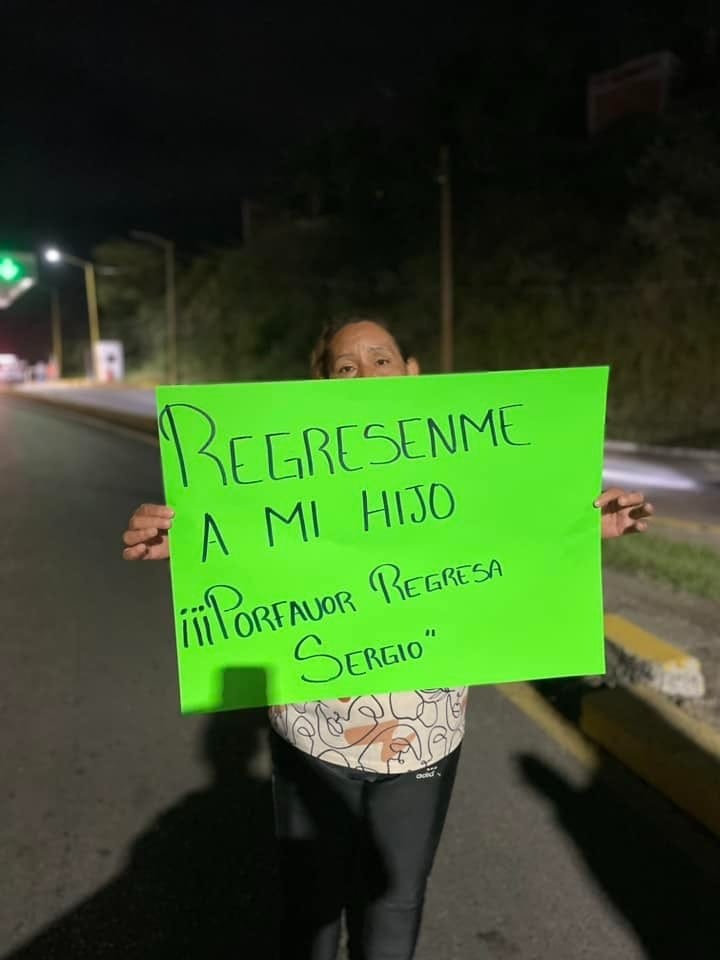 REGRESENME
A MI HIJO
¡¡¡PORFAVOR REGRESA
SERGIO"
adid